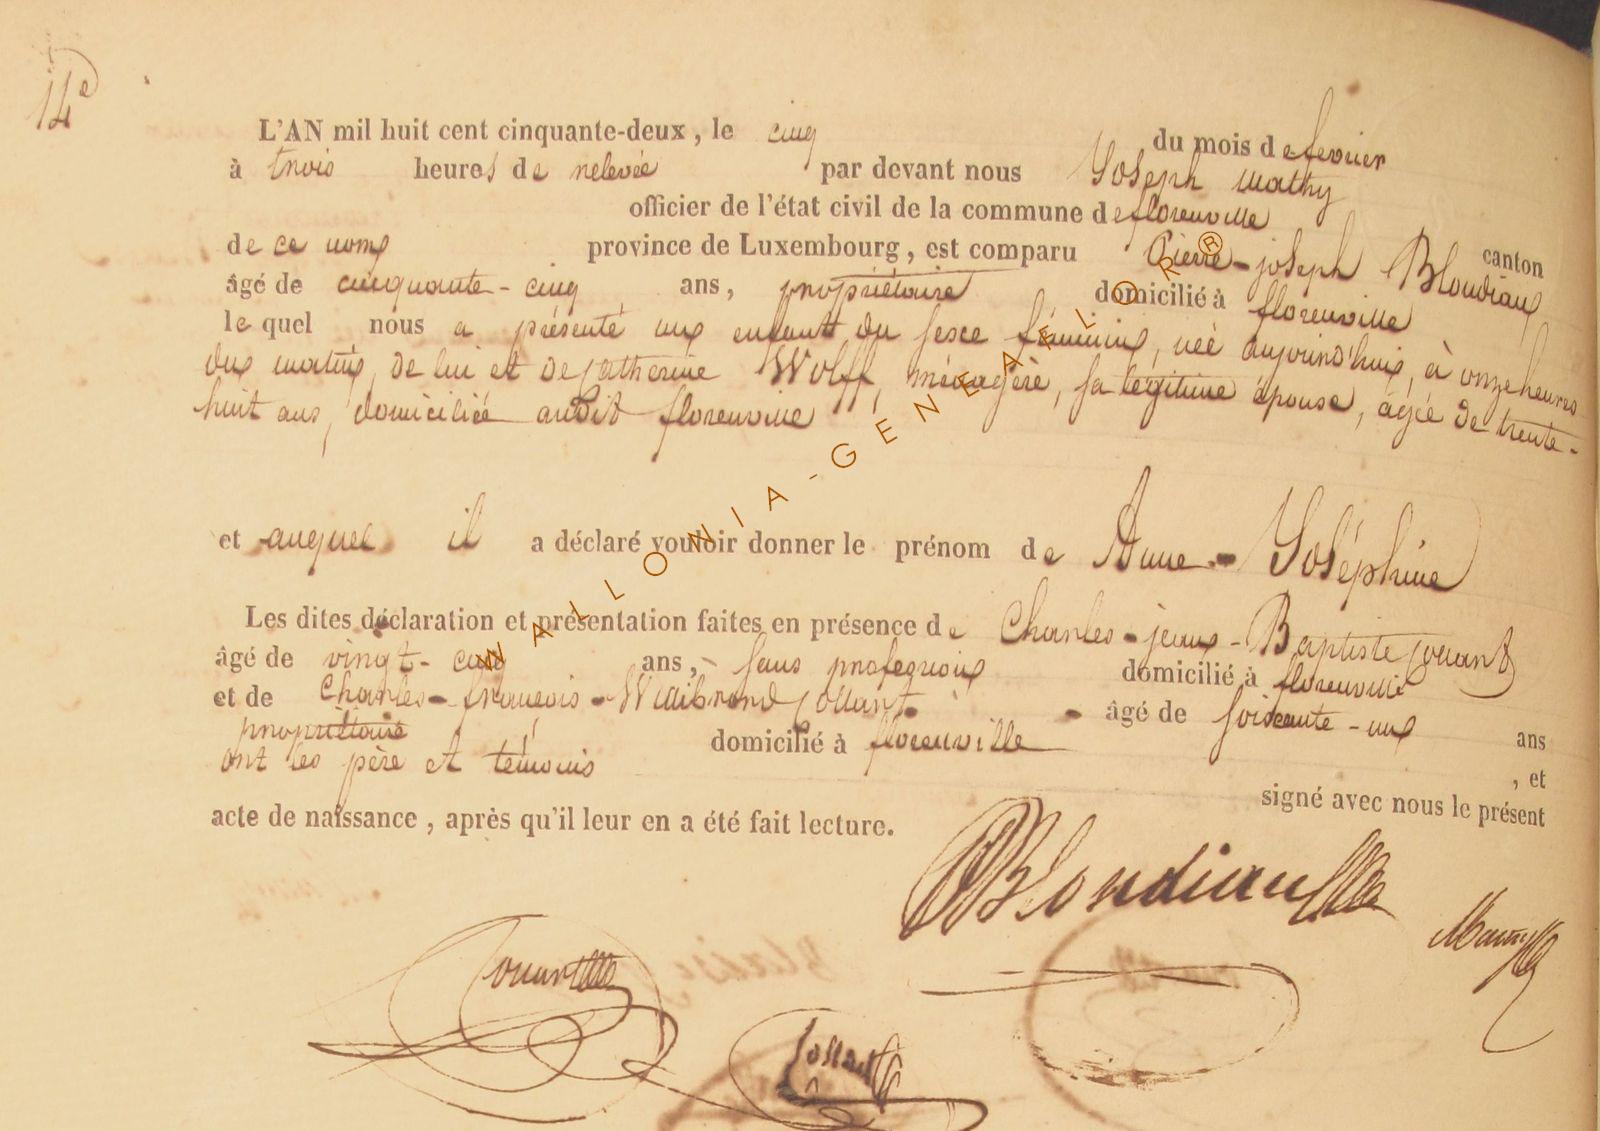 14e
L'AN mil huit cent cinquante-deux, le cinq du mois de fevrier
à trois heures de relevée par devant nous Joseph Mathy
officier de l'état civil de la commune de florenville canton
de ce nom province de Luxembourg, est comparu Pierre-joseph Blondiaux
âgé de cinquante-cinq ans, propriétaire domicilié à florenville
le quel nous a présenté un enfant du sexe féminin, née aujourd'hui, à onze heures
du matin, de lui et de Catherine Wolff, ménagère, sa légitime épouse, âgée de trente-
huit ans, domiciliée audit florenville
et auquel il a déclaré vouloir donner le prénom de Anne-Joséphine
Les dites déclaration et présentation faites en présence de Charles-jean-Baptiste
âgé de vingt-cinq ans, sans profession domicilié à florenville
et de Charles-françois-Willibrord âgé de soixante-un ans
propriétaire domicilié à florenville , et
ont les père et témoins signé avec nous le présent
acte de naissance, après qu'il leur en a été fait lecture.
Blondiaux
WALLONIA-GENEAFLOR®